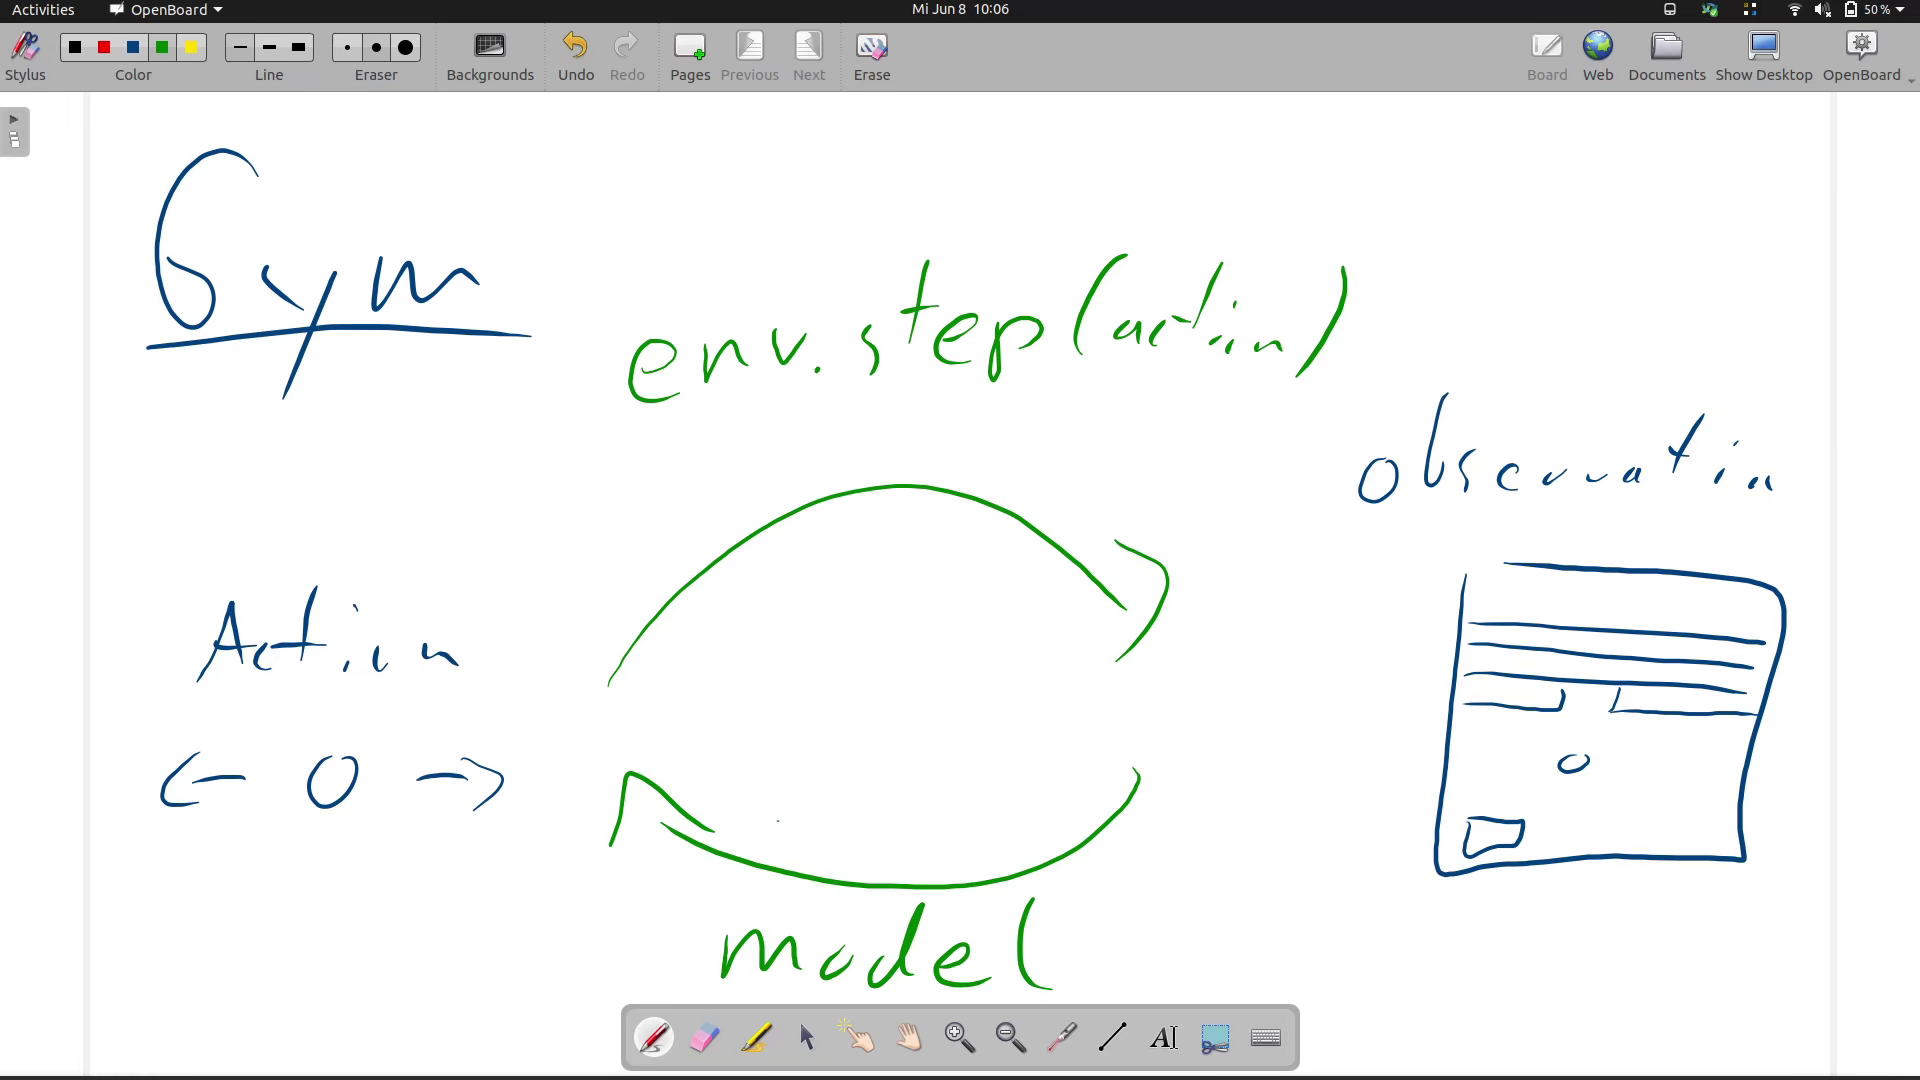 Activities OpenBoard Mi Jun 8 10:06 50 %
Stylus Color Line Eraser Backgrounds Undo Redo Pages Previous Next Erase Board Web Documents Show Desktop OpenBoard
Gym
env.step(action)
Observation
Action
← 0 →
model
AI